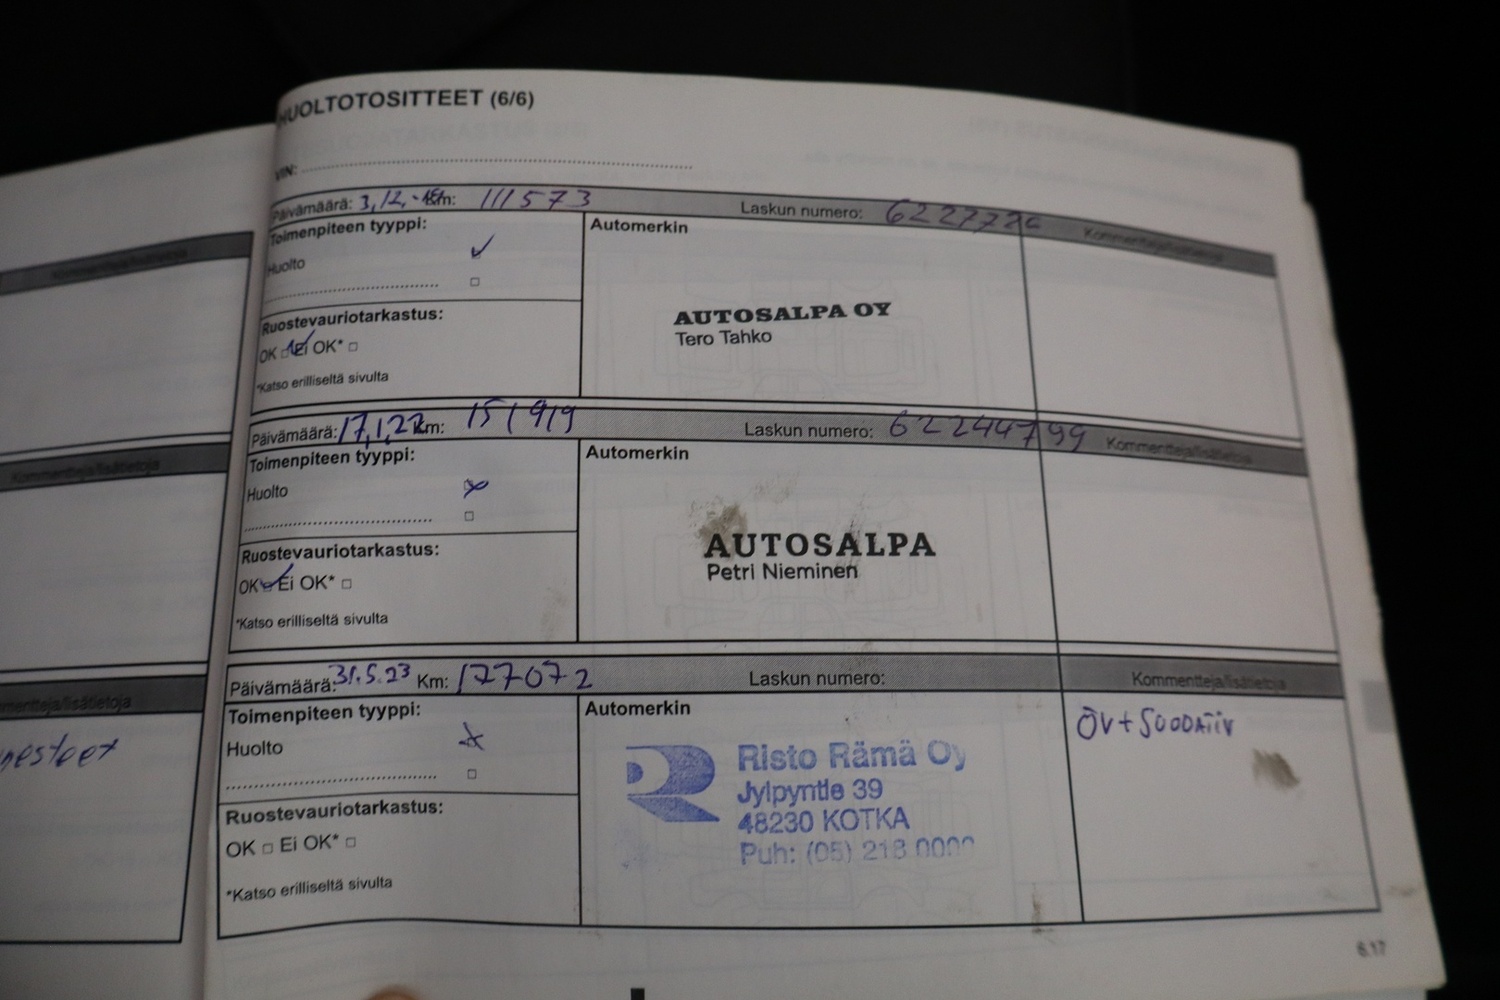 HUOLTOTOSITTEET (6/6)
VIN:
Päivämäärä: 3,12,-18 Km: 111573 Laskun numero: Kommentteja/lisätietoja
Toimenpiteen tyyppi:
Huolto
Ruostevauriotarkastus:
OK □ Ei OK* □
*Katso erilliseltä sivulta
Automerkin
AUTOSALPA OY
Tero Tahko
Päivämäärä: 17,1,22 Km: 151919 Laskun numero: 62244799 Kommentteja/lisätietoja
Toimenpiteen tyyppi:
Huolto
Ruostevauriotarkastus:
OK □ Ei OK* □
*Katso erilliseltä sivulta
Automerkin
AUTOSALPA
Petri Nieminen
Päivämäärä: 31.5.23 Km: 177072 Laskun numero: Kommentteja/lisätietoja
Toimenpiteen tyyppi:
Huolto
Ruostevauriotarkastus:
OK □ Ei OK* □
*Katso erilliseltä sivulta
Automerkin
Risto Rämä Oy
Jylpyntie 39
48230 KOTKA
Puh: (05) 218 0000
ÖV+SUODATIN
Kommentteja/lisätietoja
Kommentteja/lisätietoja
6.17